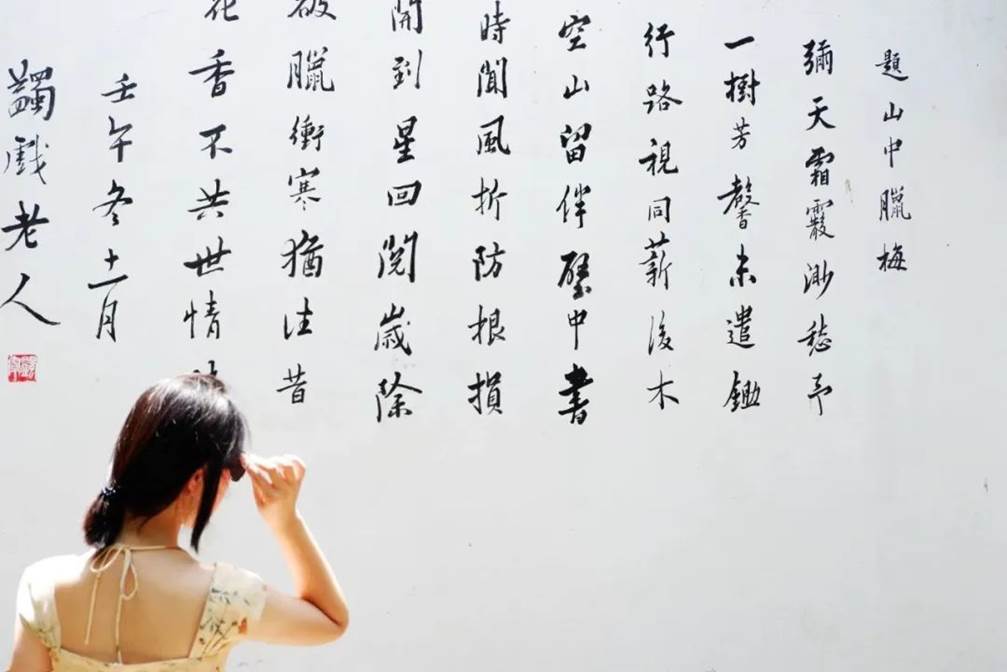 題山中臘梅
彌天霜霰渺愁予
一樹芳馨未遣鋤
行路視同薪後木
空山留伴壁中書
時聞風折防根損
開到星回閱歲除
破臘衝寒猶往昔
花香不共世情
壬午冬十一月
蠲戲老人